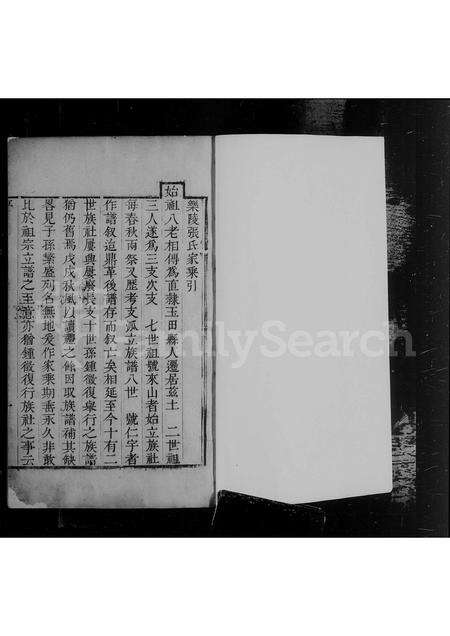 樂陵張氏家乘引
始祖八老相傳為直隸玉田縣人遷居茲土 二世祖
三人遂為三支次支 七世祖號來山者始立族社
每春秋兩祭又歷考支派立族譜八世 號仁宇者
作譜敘迨鼎革後譜存而敘亡矣相延至今十有二
世族社屢興屢廢長支十世孫鍾徽復舉行之族譜
猶仍舊焉戊戌秋風 讀禮之餘因取族譜補其缺
畧見子孫繁盛列名無地爰作家乘期垂永久非敢
比於祖宗立譜之至意亦猶鍾徽復行族社之事云
FamilySearch